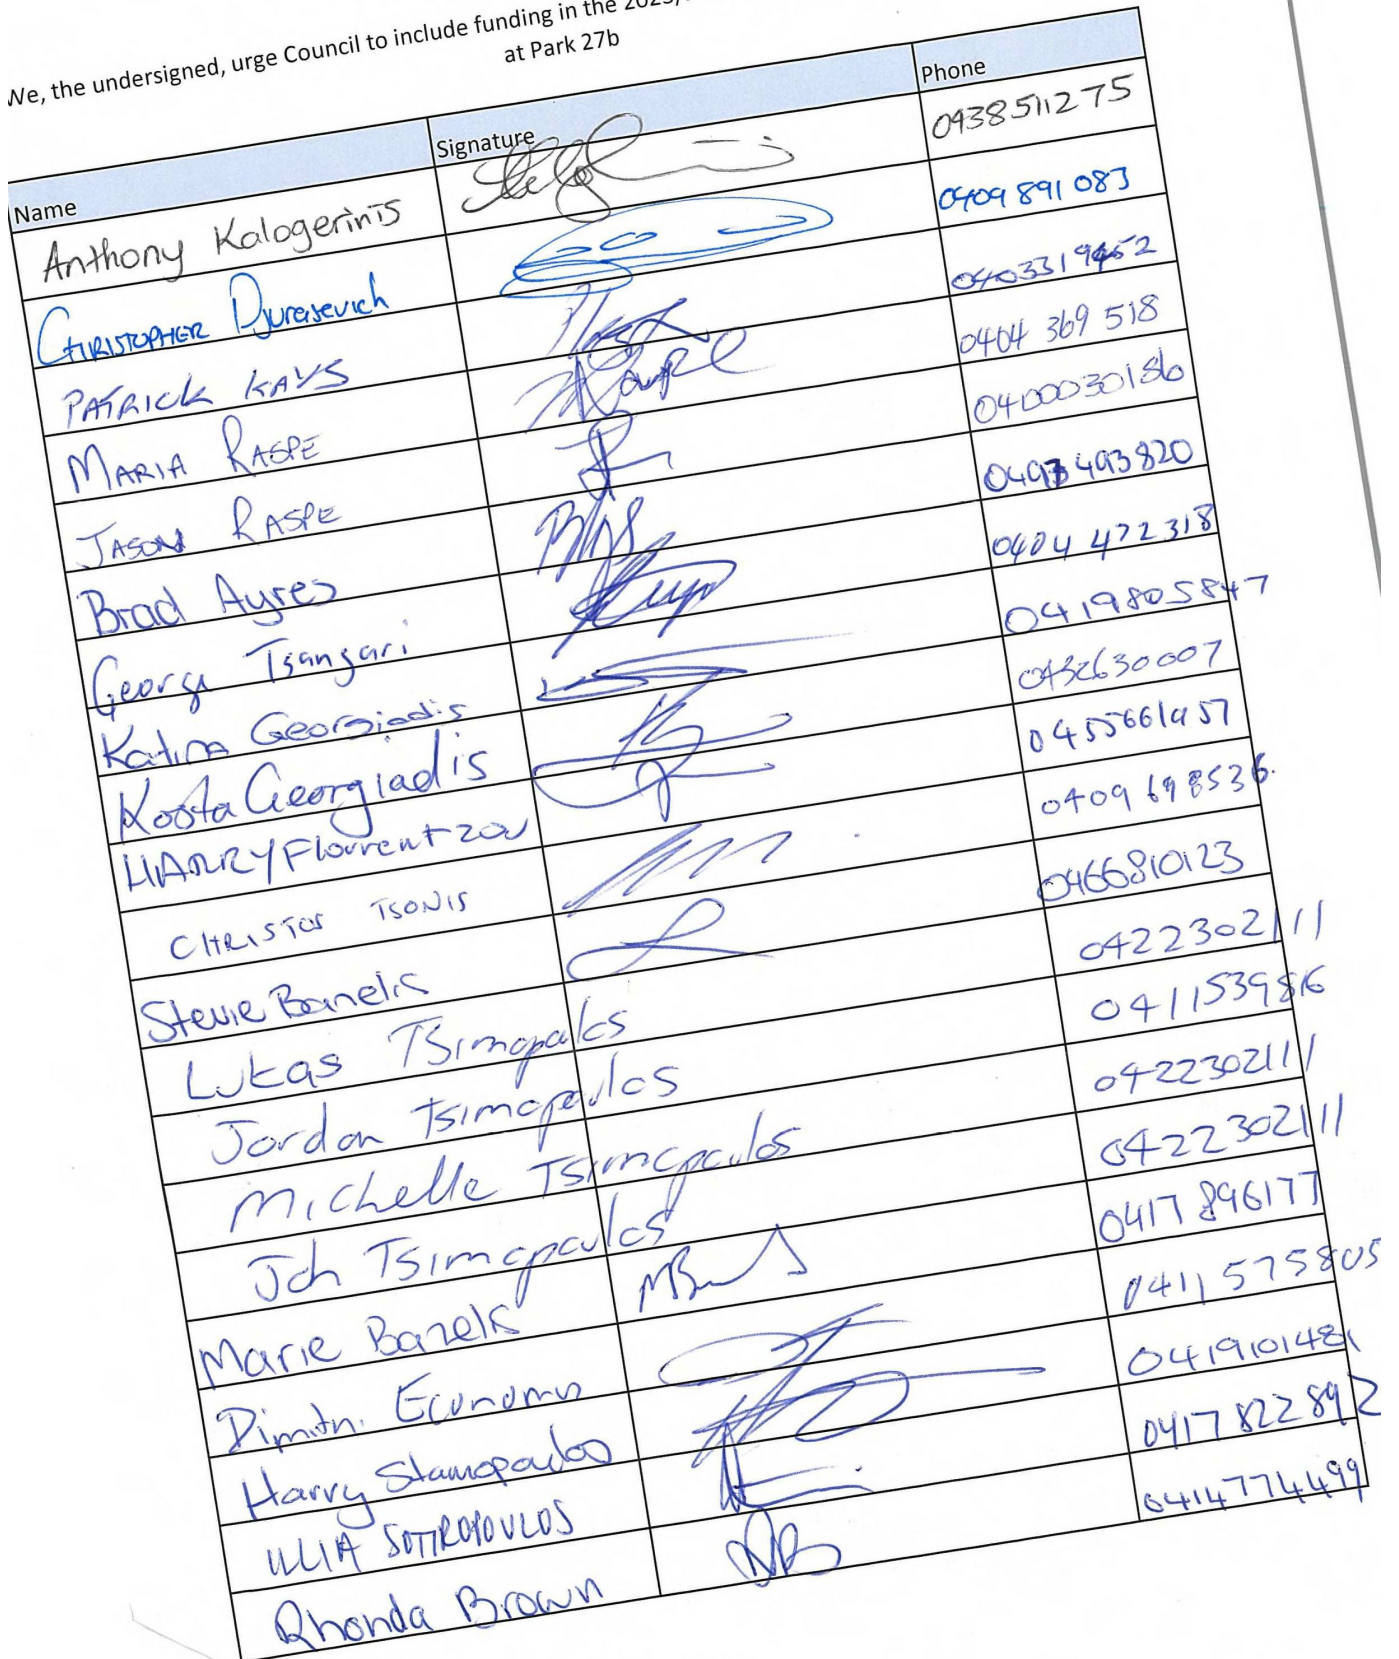 We, the undersigned, urge Council to include funding in the
at Park 27b
Name Signature Phone
Anthony Kalogerinis 0438511275
CHRISTOPHER Djurasevich 0409 891 083
PATRICK KAVS 0403319452
MARIA RASPE 0404 369 518
JASON RASPE 0400030186
Brad Ayres 493 820
George Tsangari 0404 472318
Katina Georgiadis 0419805847
Kosta Georgiadis 0432630007
HARRY Florrentzou 0455661957
CHRISTOS TSONIS 0409 698536
Stevie Banelis 0466810123
Lukas Tsimopoulos 0422302111
Jordan Tsimopoulos 0411539816
Michelle Tsimopoulos 0422302111
Joh Tsimopoulos 0422302111
Marie Banelis 0417 896177
Dimitri Economos 0411 575805
Harry Stamopoulos 0419101481
ULLIA SOTIROPOULOS 0417 822 892
Rhonda Brown 0414774499